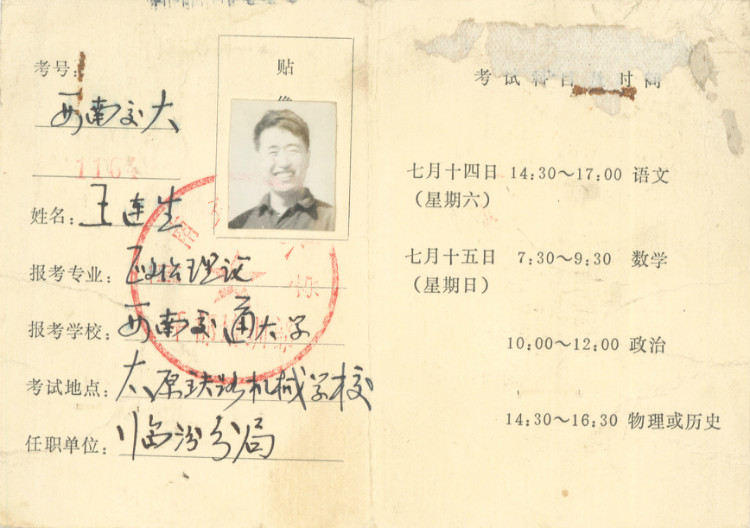 考号:
西南交大
1164
姓名:王连生
报考专业:政治理论
报考学校:西南交通大学
考试地点:太原铁路机械学校
任职单位:临汾分局
贴
像
考试科目及时间
七月十四日 14:30～17:00 语文
(星期六)
七月十五日 7:30～9:30 数学
(星期日)
10:00～12:00 政治
14:30～16:30 物理或历史